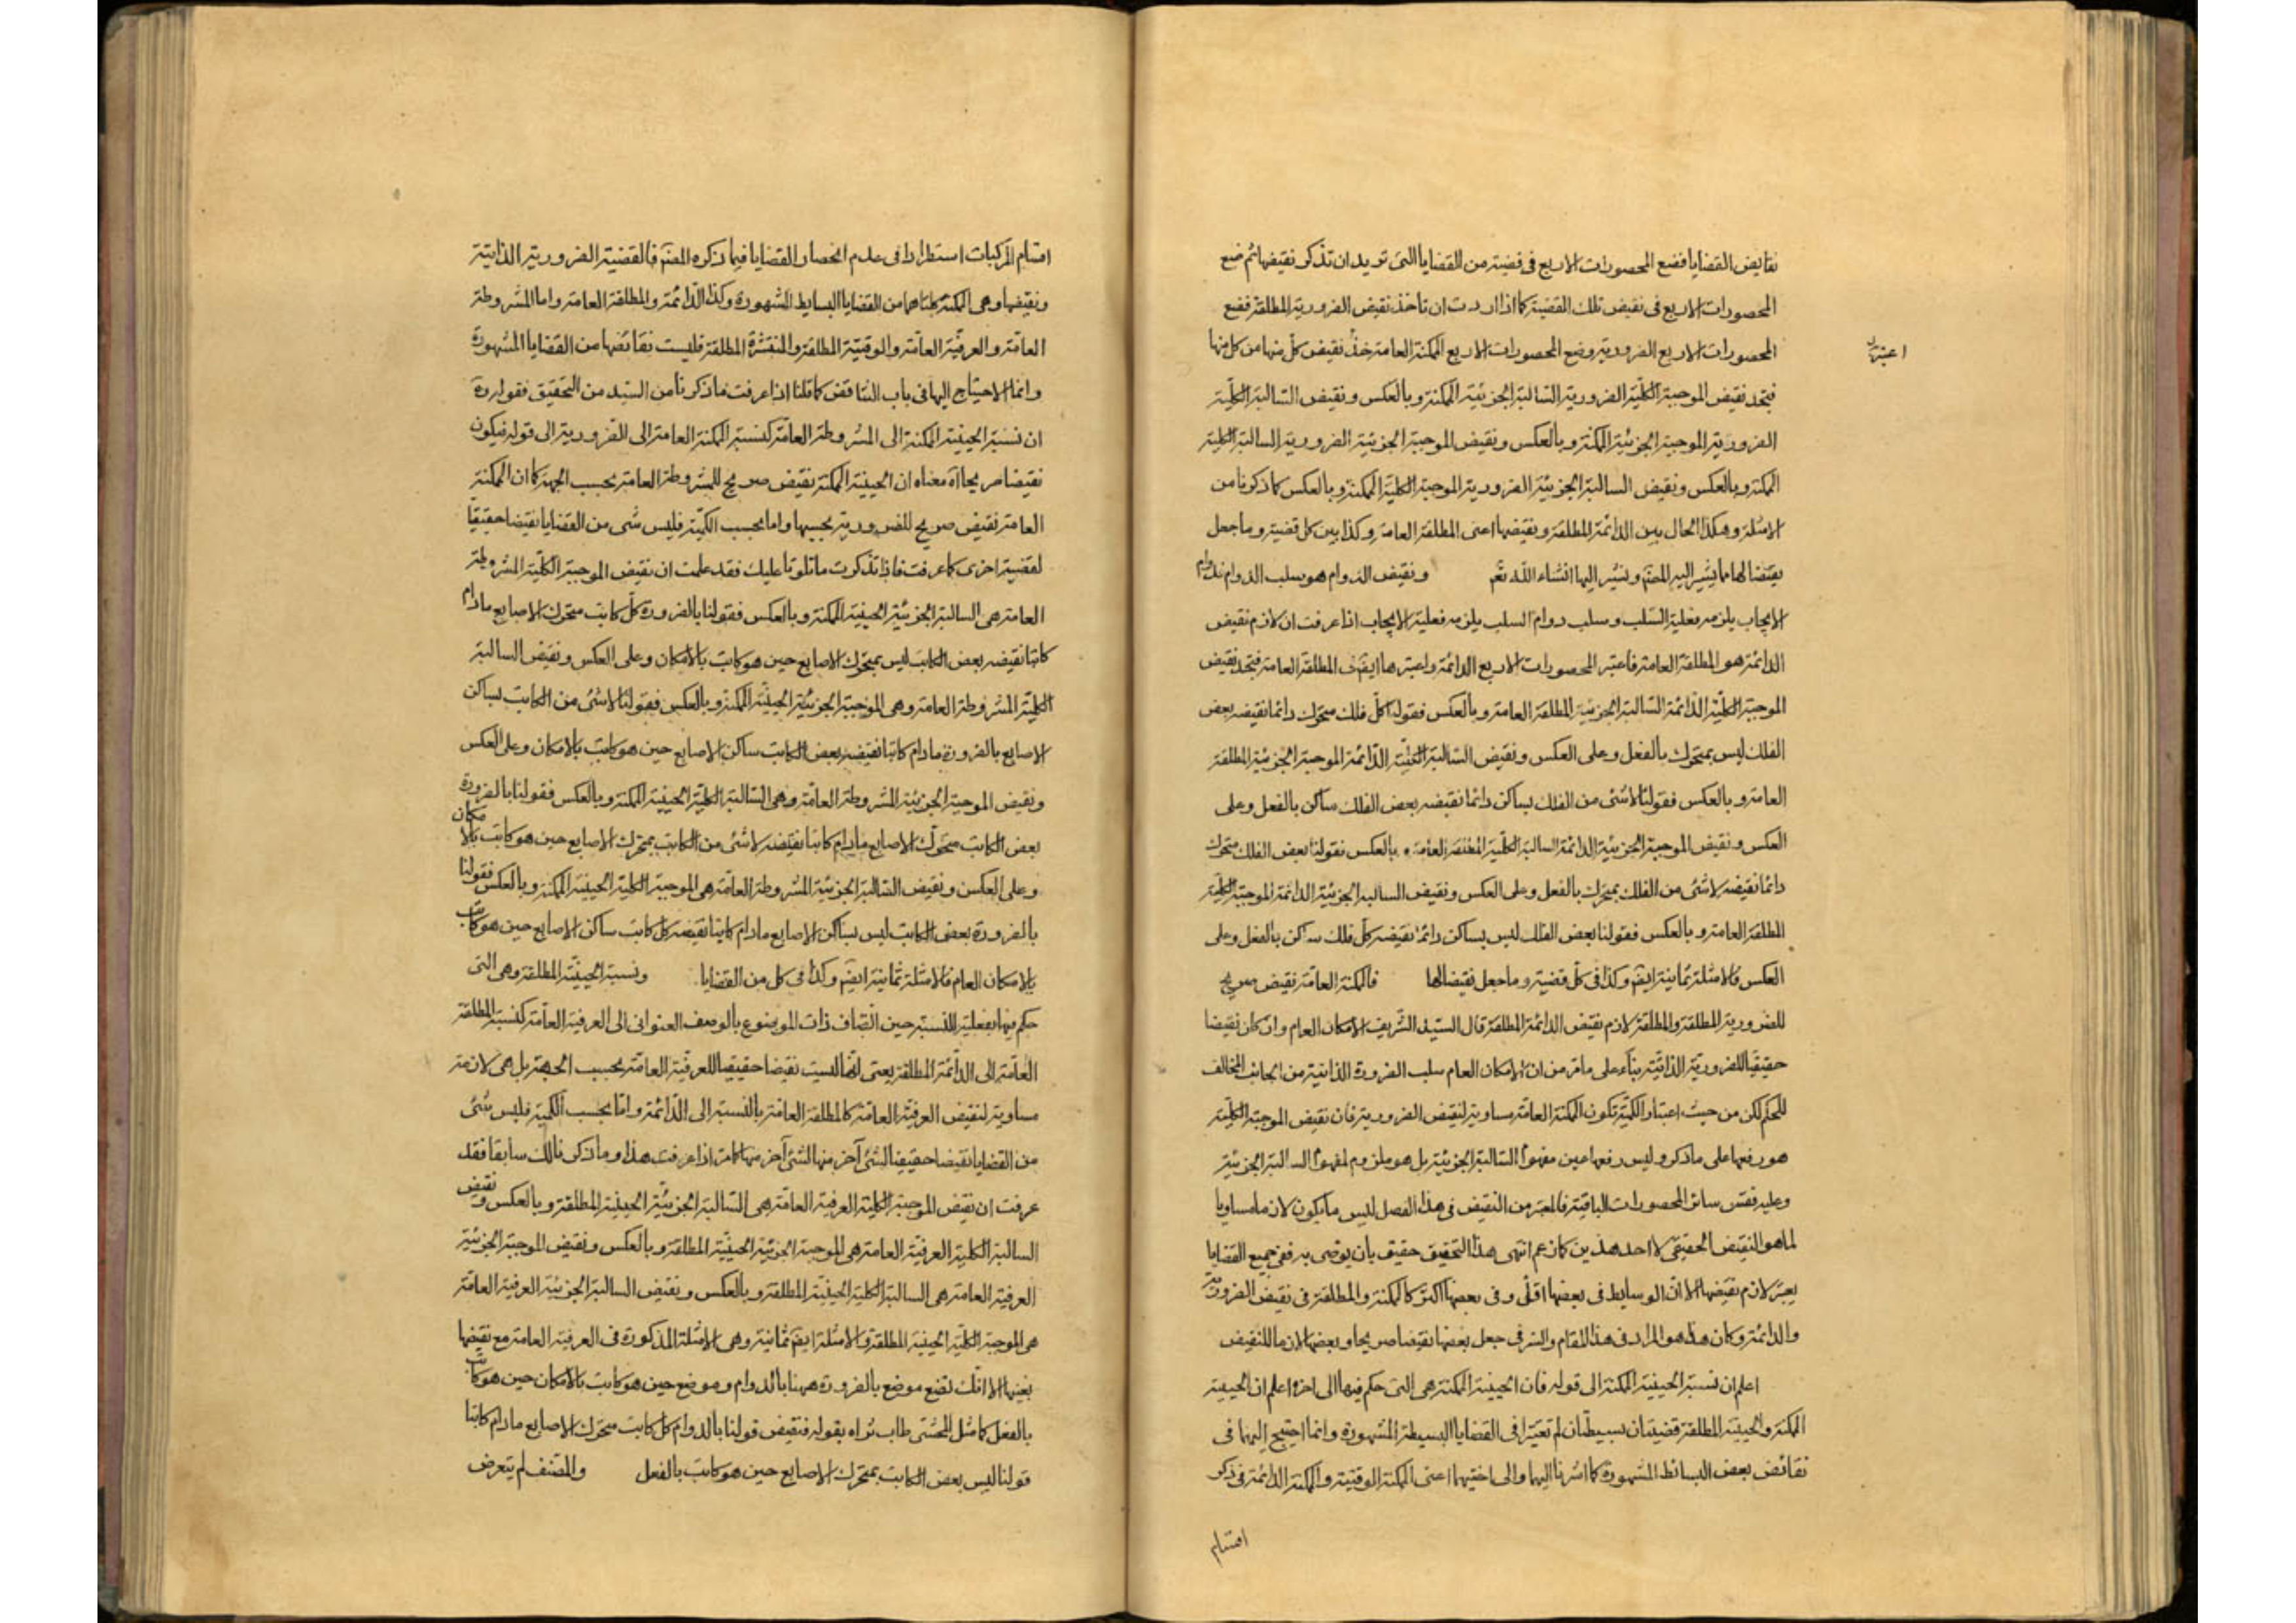 نقايض القضايا فضع المحصورات الاربع فى قضية من القضايا التى تريد ان تذكر نقيضها ثم ضع
المحصورات الاربع فى نقيض تلك القضية كما اذا اردت ان تاخذ نقيض الضرورية المطلقة فضع
المحصورات الاربع الضرورية وضع المحصورات الاربع الممكنة العامة خذ نقيض كل منها من كل منها
فتجد نقيض الموجبة الكلية الضرورية السالبة الجزئية الممكنة وبالعكس ونقيض السالبة الكلية
الضرورية الموجبة الجزئية الممكنة وبالعكس ونقيض الموجبة الجزئية الضرورية السالبة الكلية
الممكنة وبالعكس ونقيض السالبة الجزئية الضرورية الموجبة الكلية الممكنة وبالعكس كما ذكرنا من
الامثلة وهكذا الحال بين الدائمة المطلقة ونقيضها اعنى المطلقة العامة وكذا بين كل قضية وما جعل
نقيضا لها مما يشير اليه المصنم ونشير اليها انشاء الله تعم ونقيض الدوام هو سلب الدوام
الايجاب يلزمه فعلية السلب وسلب دوام السلب يلزمه فعلية الايجاب اذا عرفت ان لازم نقيض
الدائمة هو المطلقة العامة فاعتبر المحصورات الاربع الدائمة واعتبرها ايضم فى المطلقة العامة فتجد نقيض
الموجبة الكلية الدائمة السالبة الجزئية المطلقة العامة وبالعكس فقولنا كل فلك متحرك دائما نقيضه بعض
الفلك ليس بمتحرك بالفعل وعلى العكس ونقيض السالبة الكلية الدائمة الموجبة الجزئية المطلقة
العامة وبالعكس فقولنا لا شئ من الفلك بساكن دائما نقيضه بعض الفلك ساكن بالفعل وعلى
العكس ونقيض الموجبة الجزئية الدائمة السالبة الكلية المطلقة العامة وبالعكس فقولنا بعض الفلك متحرك
دائما نقيضه لا شئ من الفلك بمتحرك بالفعل وعلى العكس ونقيض السالبة الجزئية الدائمة الموجبة الكلية
المطلقة العامة وبالعكس فقولنا بعض الفلك ليس بساكن دائما نقيضه كل فلك ساكن بالفعل وعلى
العكس فالامثلة ثمانية ايضم وكذا فى كل قضية وما جعل نقيضا لها فالممكنة العامة نقيض صريح
للضرورية المطلقة والمطلقة لازم نقيض الدائمة المطلقة قال السيد الشريف الامكان العام وان كان نقيضا
حقيقيا للضرورية الذاتية بناء على ما مر من ان الامكان العام سلب الضرورة الذاتية من الجانب المخالف
للحكم لكن من حيث اعتبار الكمية تكون الممكنة العامة مساوية لنقيض الضرورية فان نقيض الموجبة الكلية
هو رفعها على ما ذكر وليس رفعها عين مفهوم السالبة الجزئية بل هو ملزوم لمفهوم السالبة الجزئية
وعليه فقس سائر المحصورات الباقية فالمعتبر من النقيض فى هذا الفصل ليس ما يكون لازما مساويا
لما هو النقيض الحقيقى لا احد هذين كان عم انتهى هذا التحقيق حقيق بان يوصى به ففى جميع القضايا
يعتبر لازم نقيضها الا ان الوسايط فى بعضها اقل وفى بعضها اكثر كالممكنة والمطلقة فى نقيض الضرورية
والدائمة وكان هذا هو المراد فى هذا المقام والسر فى جعل بعضها نقيضا صريحا وبعضها لازما للنقيض
اعلم ان نسبة الحينية الممكنة الى قوله فان الحينية الممكنة هى التى حكم فيها الى اخره اعلم ان الحينية
الممكنة والحينية المطلقة قضيتان بسيطتان لم تعتبرا فى القضايا البسيطة المشهورة وانما احتيج اليهما فى
نقائض بعض البسائط المشهورة كما اشرنا اليها والى اختيهما اعنى الممكنة الوقتية والممكنة الدائمة فى ذكر
اقسام
اقسام المركبات استطرادا فى عدم انحصار القضايا فيما ذكره المصنم فالقضية الضرورية الذاتية
ونقيضها وهى الممكنة كلتاهما من القضايا البسايط المشهورة وكذا الدائمة والمطلقة العامة واما المشروطة
العامة والعرفية العامة والوقتية المطلقة والمنتشرة المطلقة فليست نقائضها من القضايا المشهورة
وانما الاحتياج اليها فى باب التناقض كما قلنا اذا عرفت ما ذكرنا من السيد من التحقيق فقوله ره
ان نسبة الحينية الممكنة الى المشروطة العامة كنسبة الممكنة العامة الى الضرورية الى قوله فيكون
نقيضا صريحا اه معناه ان الحينية الممكنة نقيض صريح للمشروطة العامة بحسب الجهة كما ان الممكنة
العامة نقيض صريح للضرورية بحسبها واما بحسب الكمية فليس شئ من القضايا نقيضا حقيقيا
لقضية اخرى كما عرفت فاذا تذكرت ما تلونا عليك فقد علمت ان نقيض الموجبة الكلية المشروطة
العامة هى السالبة الجزئية الحينية الممكنة وبالعكس فقولنا بالضرورة كل كاتب متحرك الاصابع مادام
كاتبا نقيضه بعض الكاتب ليس بمتحرك الاصابع حين هو كاتب بالامكان وعلى العكس ونقيض السالبة
الكلية المشروطة العامة وهى الموجبة الجزئية الحينية الممكنة وبالعكس فقولنا لا شئ من الكاتب بساكن
الاصابع بالضرورة مادام كاتبا نقيضه بعض الكاتب ساكن الاصابع حين هو كاتب بالامكان وعلى العكس
ونقيض الموجبة الجزئية المشروطة العامة وهى السالبة الكلية الحينية الممكنة وبالعكس فقولنا بالضرورة
بعض الكاتب متحرك الاصابع مادام كاتبا نقيضه لا شئ من الكاتب بمتحرك الاصابع حين هو كاتب بالامكان
وعلى العكس ونقيض السالبة الجزئية المشروطة العامة هى الموجبة الكلية الحينية الممكنة وبالعكس فقولنا
بالضرورة بعض الكاتب ليس بساكن الاصابع مادام كاتبا نقيضه كل كاتب ساكن الاصابع حين هو كاتب
بالامكان العام فالامثلة ثمانية ايضم وكذا فى كل من القضايا ونسبة الحينية المطلقة وهى التى
حكم فيها بفعلية النسبة حين اتصاف ذات الموضوع بالوصف العنوانى الى العرفية العامة كنسبة المطلقة
العامة الى الدائمة المطلقة يعنى انها ليست نقيضا حقيقيا للعرفية العامة بحسب الجهة بل هى لازمة
مساوية لنقيض العرفية العامة كالمطلقة العامة بالنسبة الى الدائمة واما بحسب الكمية فليس شئ
من القضايا نقيضا حقيقيا لشئ آخر منها لشئ آخر منها كما مر اذا عرفت هذا وما ذكر فالك سابقا فقد
عرفت ان نقيض الموجبة الكلية العرفية العامة هى السالبة الجزئية الحينية المطلقة وبالعكس ونقيض
السالبة الكلية العرفية العامة هى الموجبة الجزئية الحينية المطلقة وبالعكس ونقيض الموجبة الجزئية
العرفية العامة هى السالبة الكلية الحينية المطلقة وبالعكس ونقيض السالبة الجزئية العرفية العامة
هى الموجبة الكلية الحينية المطلقة والامثلة ايضم ثمانية وهى الامثلة المذكورة فى العرفية العامة مع نقيضها
بعينها الا انك تضع موضع بالضرورة ههنا بالدوام وموضع حين هو كاتب بالامكان حين هو كاتب
بالفعل كما مثل المحشى طاب ثراه بقوله فنقيض قولنا بالدوام كل كاتب متحرك الاصابع مادام كاتبا
قولنا ليس بعض الكاتب بمتحرك الاصابع حين هو كاتب بالفعل والمصنف لم يتعرض